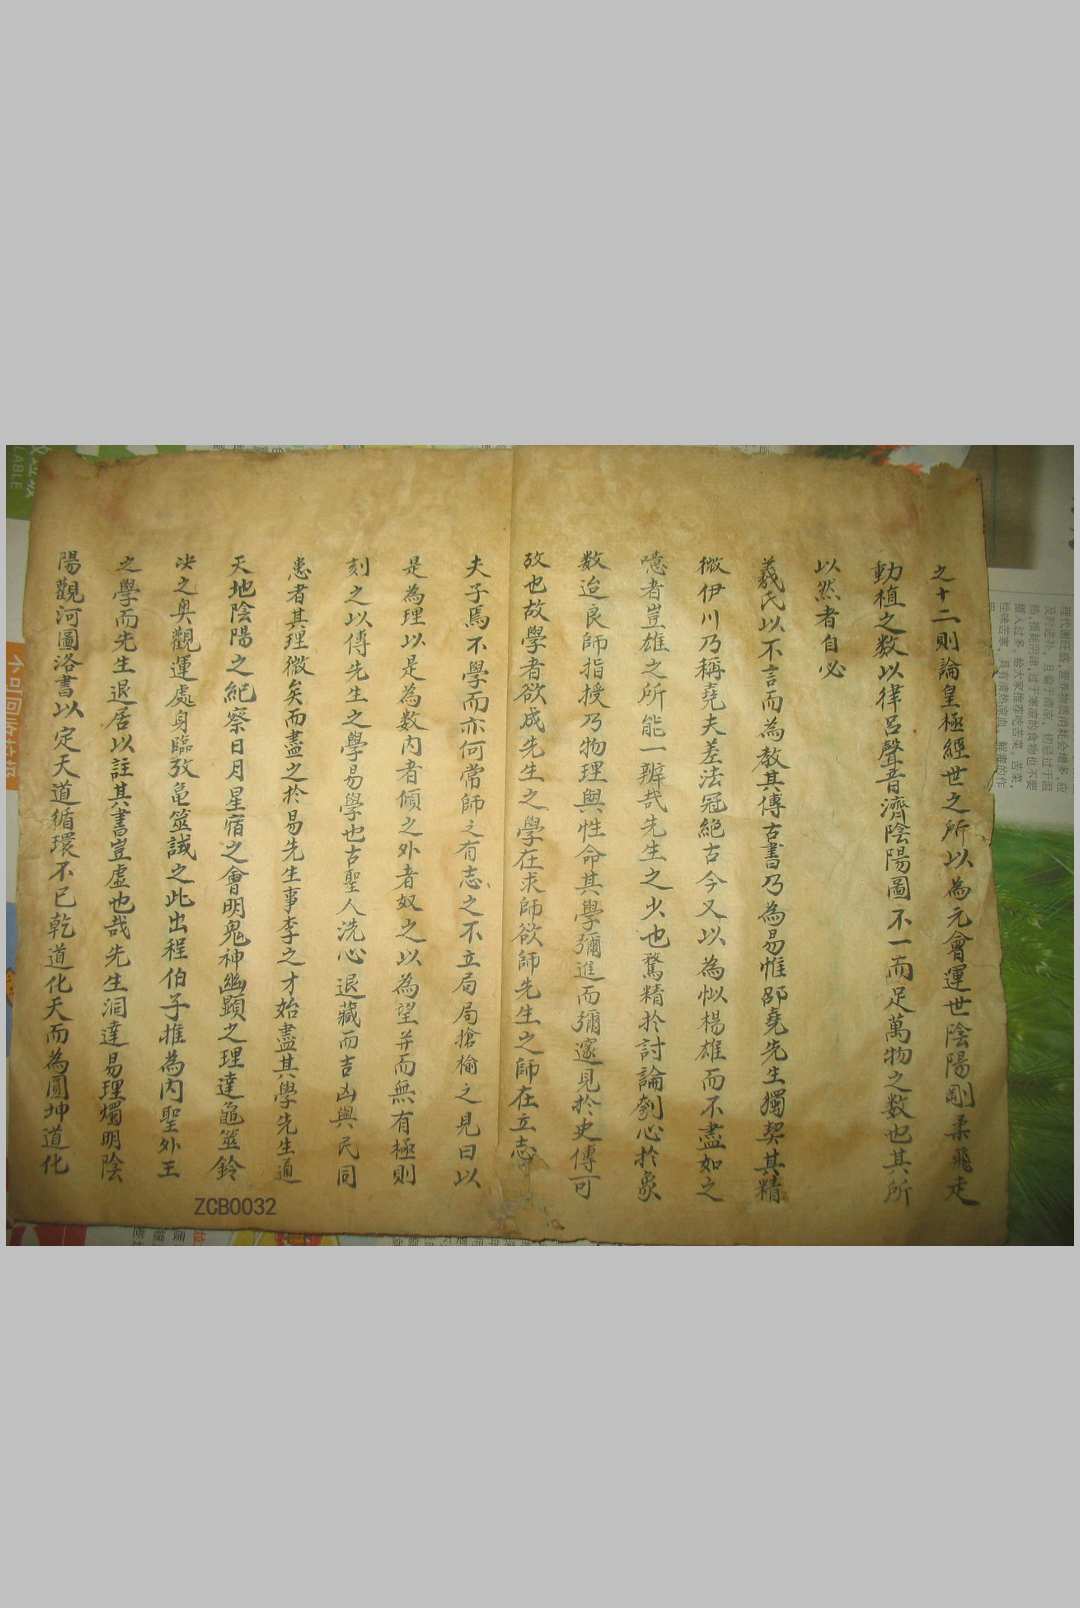 之十二則論皇極經世之所以為元會運世陰陽剛柔飛走
動植之数以律吕聲音濟陰陽圖不一而足萬物之数也其所
以然者自必
羲氏以不言而為教其傳古書乃為易惟邵堯先生獨契其精
微伊川乃稱堯夫差法冠絕古今又以為惟楊雄而不盡如之
噫者豈雄之所能一辨哉先生之少也驁精於討論刳心於象
数迨良師指授乃物理與性命其學彌進而彌邃見於史傳可
攷也故學者欲成先生之學在求師欲師先生之師在立志
夫子焉不學而亦何常師之有志之不立局局搶榆之見曰以
是為理以是為数内者傾之外者奴之以為望并而無有極則
刻之以傳先生之學易學也古聖人洗心退藏而吉凶與民同
患者其理微矣而盡之於易先生事李之才始盡其學先生通
天地陰陽之紀察日月星宿之會明鬼神幽顯之理達龜筮鈴
决之奥觀運處身臨攷亀筮誠之此出程伯子推為内聖外王
之學而先生退居以註其書豈虛也哉先生洞達易理燭明陰
陽觀河圖洛書以定天道循環不已乾道化天而為圓坤道化
ZCB0032